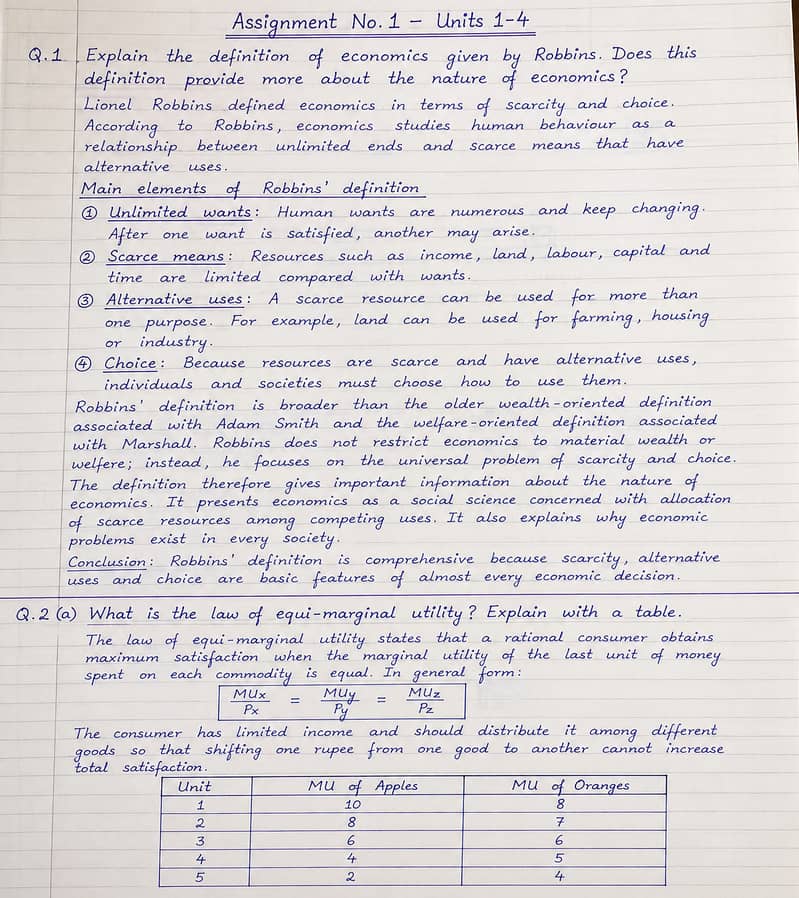 Assignment No. 1 – Units 1-4
Q.1 Explain the definition of economics given by Robbins. Does this
definition provide more about the nature of economics?
Lionel Robbins defined economics in terms of scarcity and choice.
According to Robbins, economics studies human behaviour as a
relationship between unlimited ends and scarce means that have
alternative uses.
Main elements of Robbins' definition
① Unlimited wants: Human wants are numerous and keep changing.
After one want is satisfied, another may arise.
② Scarce means: Resources such as income, land, labour, capital and
time are limited compared with wants.
③ Alternative uses: A scarce resource can be used for more than
one purpose. For example, land can be used for farming, housing
or industry.
④ Choice: Because resources are scarce and have alternative uses,
individuals and societies must choose how to use them.
Robbins' definition is broader than the older wealth-oriented definition
associated with Adam Smith and the welfare-oriented definition associated
with Marshall. Robbins does not restrict economics to material wealth or
welfere; instead, he focuses on the universal problem of scarcity and choice.
The definition therefore gives important information about the nature of
economics. It presents economics as a social science concerned with allocation
of scarce resources among competing uses. It also explains why economic
problems exist in every society.
Conclusion: Robbins' definition is comprehensive because scarcity, alternative
uses and choice are basic features of almost every economic decision.
Q.2 (a) What is the law of equi-marginal utility? Explain with a table.
The law of equi-marginal utility states that a rational consumer obtains
maximum satisfaction when the marginal utility of the last unit of money
spent on each commodity is equal. In general form:
MUx/Px = MUy/Py = MUz/Pz
The consumer has limited income and should distribute it among different
goods so that shifting one rupee from one good to another cannot increase
total satisfaction.
Unit MU of Apples MU of Oranges
1 10 8
2 8 7
3 6 6
4 4 5
5 2 4